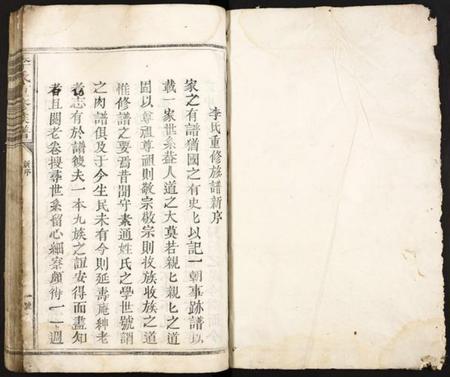 李氏重修族譜新序
家之有譜猶國之有史匕以記一朝事跡譜以
載一家世系葢人道之大莫若親匕親匕之道
固以尊祖尊祖則敬宗敬宗則收族收族之道
惟修譜之要焉昔聞守素通姓氏之學世號謂
之肉譜俱及于今生民未有今則延壽庵稗老
者志有於譜彼夫一本九族之誼安得而盡知
者且閱老卷搜尋世系留心細察顧術一一週
新序
一號